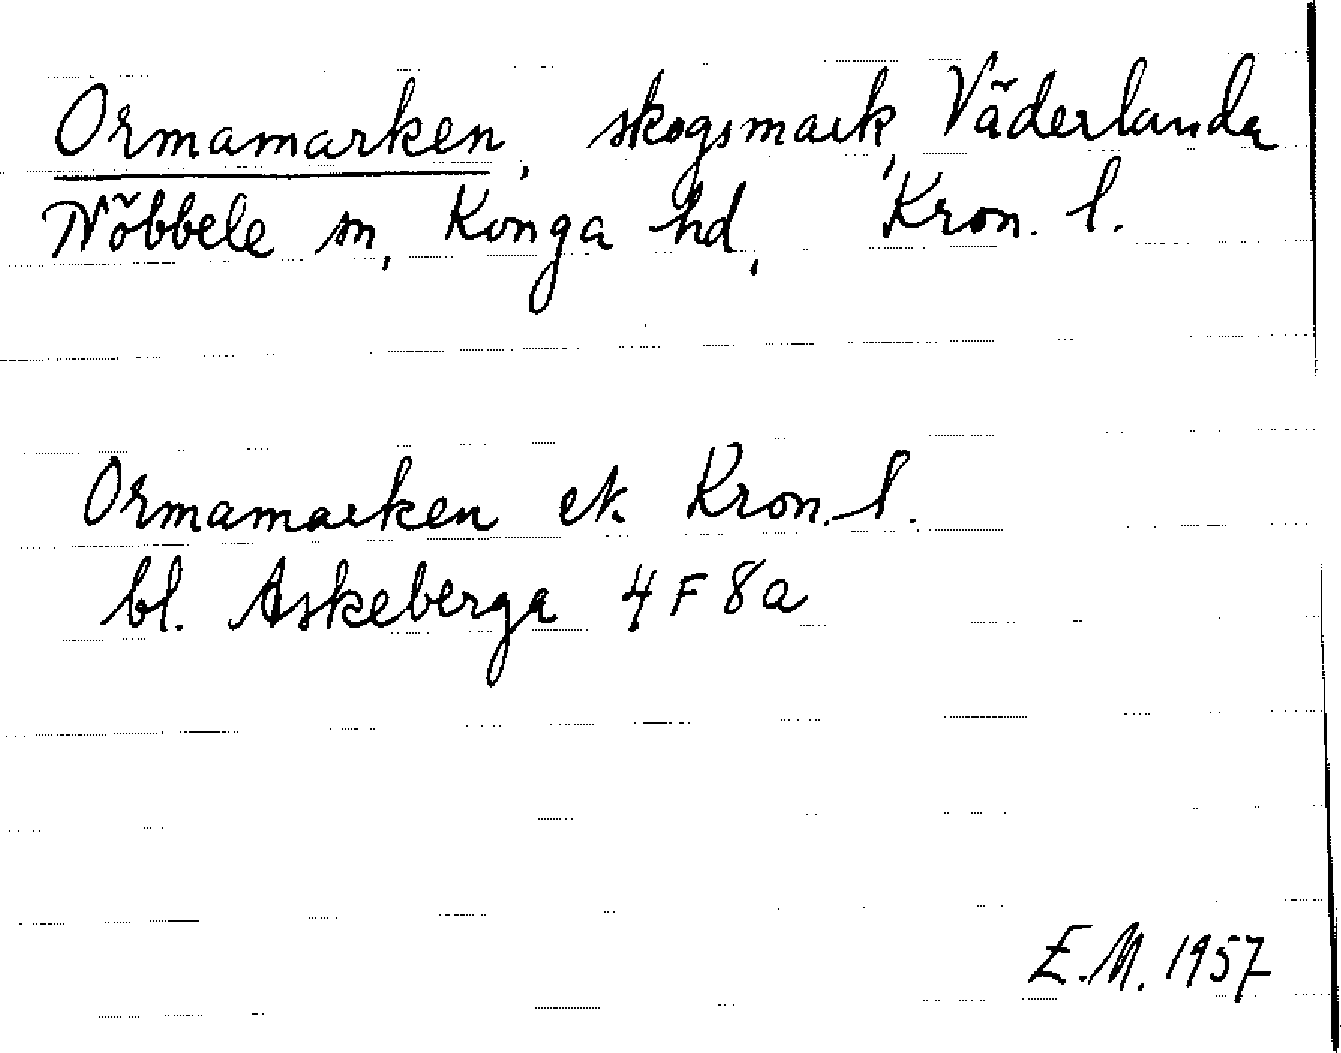 Ormamarken, skogsmark, Väderlanda
Nöbbele sn, Konga hd, Kron. l.
Ormamarken ek. Kron. l.
bl. Askeberga 4F 8a
E.M. 1957